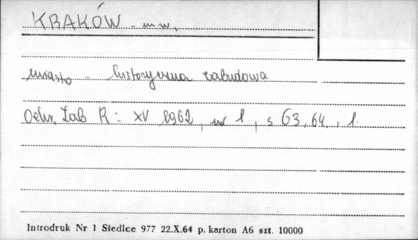 KRAKÓW - m.w.
miasto - historyczna zabudowa
Ochr. Zab. R: XV 1962, nr 1, s 63, 64,
Introdruk Nr 1 Siedlce 977 22.X.64 p. karton A6 szt. 10000